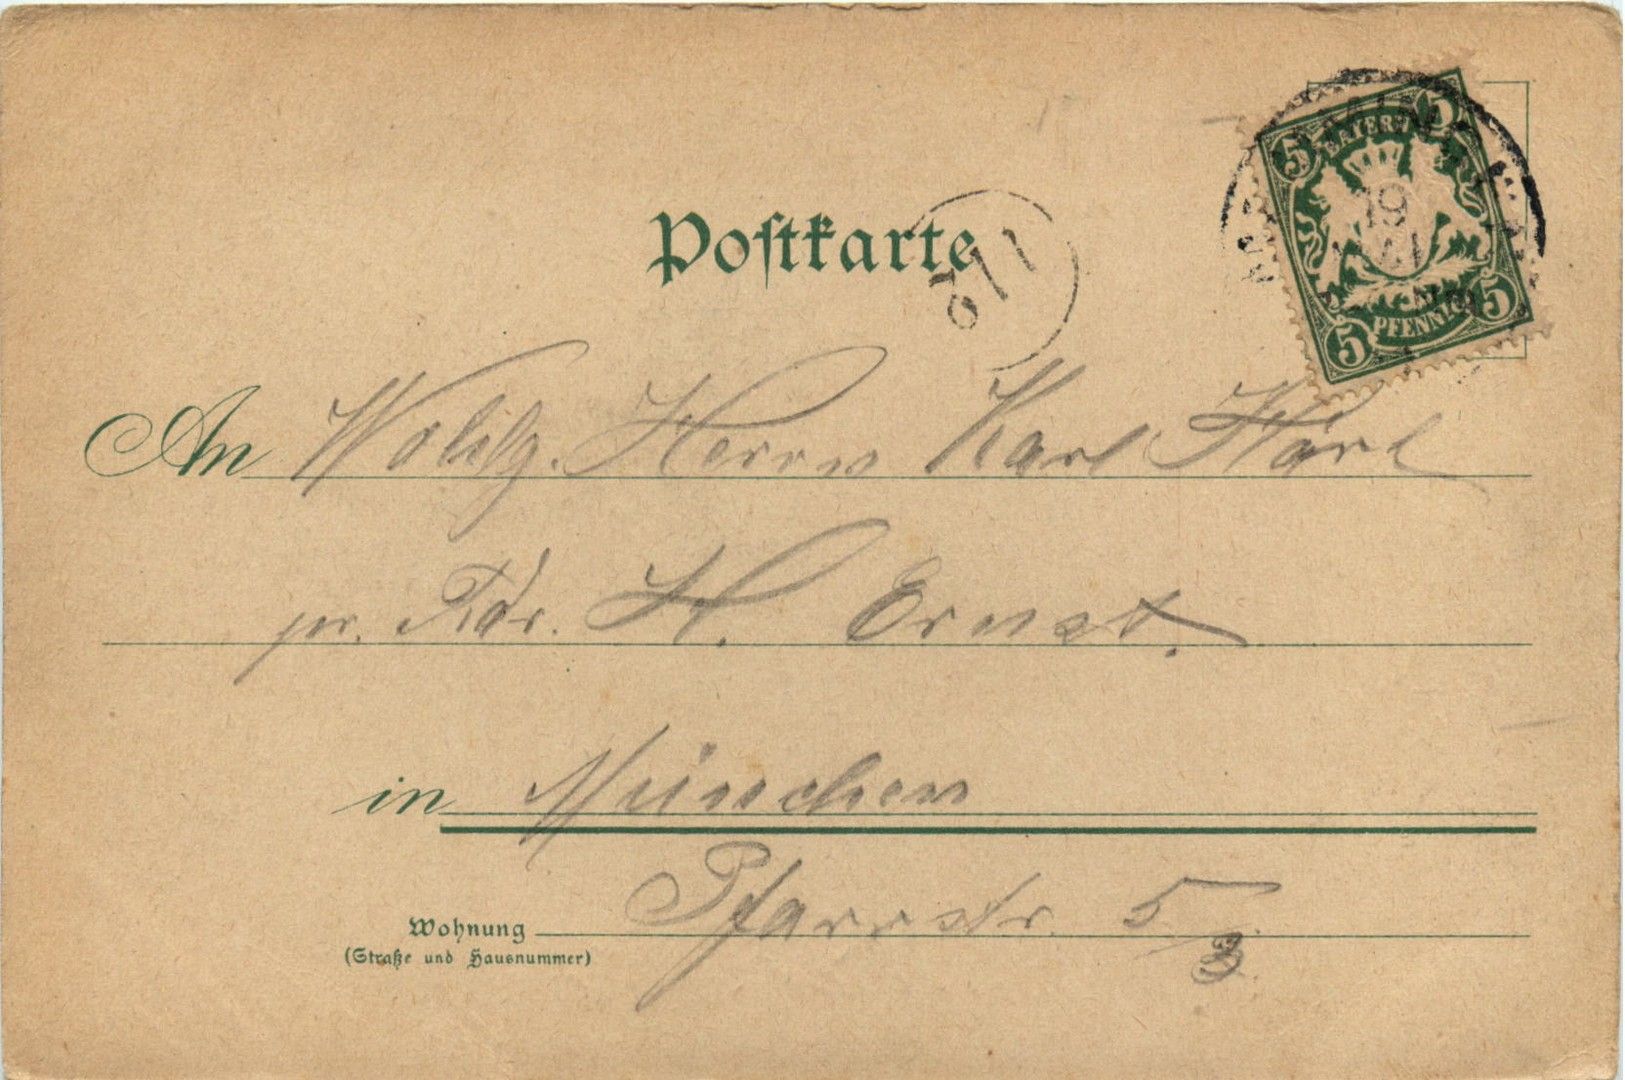 5 BAYERN 5
19
MAI
5 PFENNIG 5
Postkarte
An Wohlg. Herrn Karl Hörl
pr. Adr. H. Ernst.
in München
Wohnung Pfarrstr. 5/3
(Straße und Hausnummer)